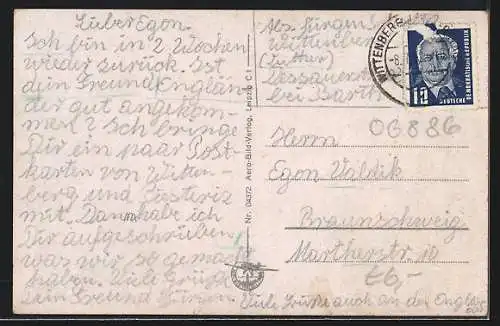 Lieber Egon.
Ich bin in 2 Wochen
wieder zurück. Ist
dein Freund Englän-
der gut angekom-
men? Ich bringe
Dir ein paar Post-
karten von Witten-
berg und Piesteritz
mit. Dann habe ich
Dir aufgeschrieben,
was wir so gemacht
haben. Viele Grüße
Dein Freund Jürgen.
Viele Grüße auch an den Englän-
der
Abs. Jürgen
Wittenberg
(Luther)
Dessauerstr.
bei Barth
WITTENBERG
DEUTSCHE
DEMOKRATISCHE REPUBLIK
12
OG886
Herrn
Egon Valdik
Braunschweig
Martherstr. 10
£6,-
Nr. 04372 Aero-Bild-Verlag, Leipzig C 1